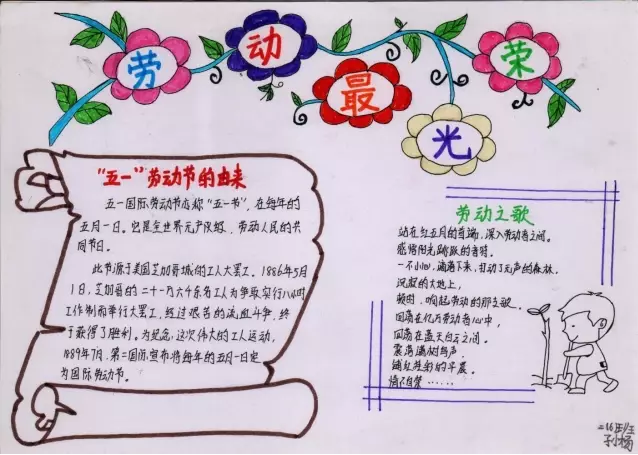 劳动最光荣
"五一"劳动节的由来
五一国际劳动节亦称"五一节",在每年的
五月一日。它是全世界无产阶级、劳动人民的共
同节日。
此节源于美国芝加哥城的工人大罢工。1886年5月
1日,芝加哥的二十一万六千余名工人为争取实行八小时
工作制而举行大罢工,经过艰苦的流血斗争,终
于获得了胜利。为纪念这次伟大的工人运动,
1889年7月,第二国际宣布将每年的五月一日定
为国际劳动节。
劳动之歌
站在红五月的首端,深入劳动者之间。
感悟阳光跳跃的音符。
一不小心,滴落下来,打动了无声的森林,
沉寂的大地上,
顿时,响起劳动的那支歌。
回荡在亿万劳动者心中,
回荡在蓝天白云之间。
震落满树鸟声,
铺红浓彩的早晨。
情不自禁……
二(6)班
孙杨